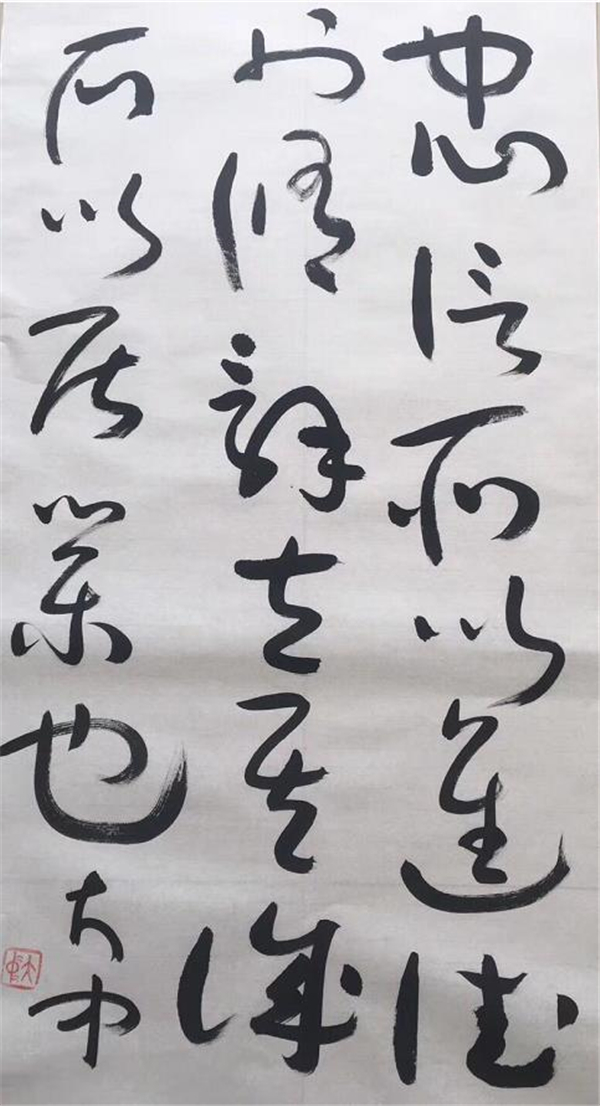 忠信所以進德
也修辭立其誠
所以居業也大中